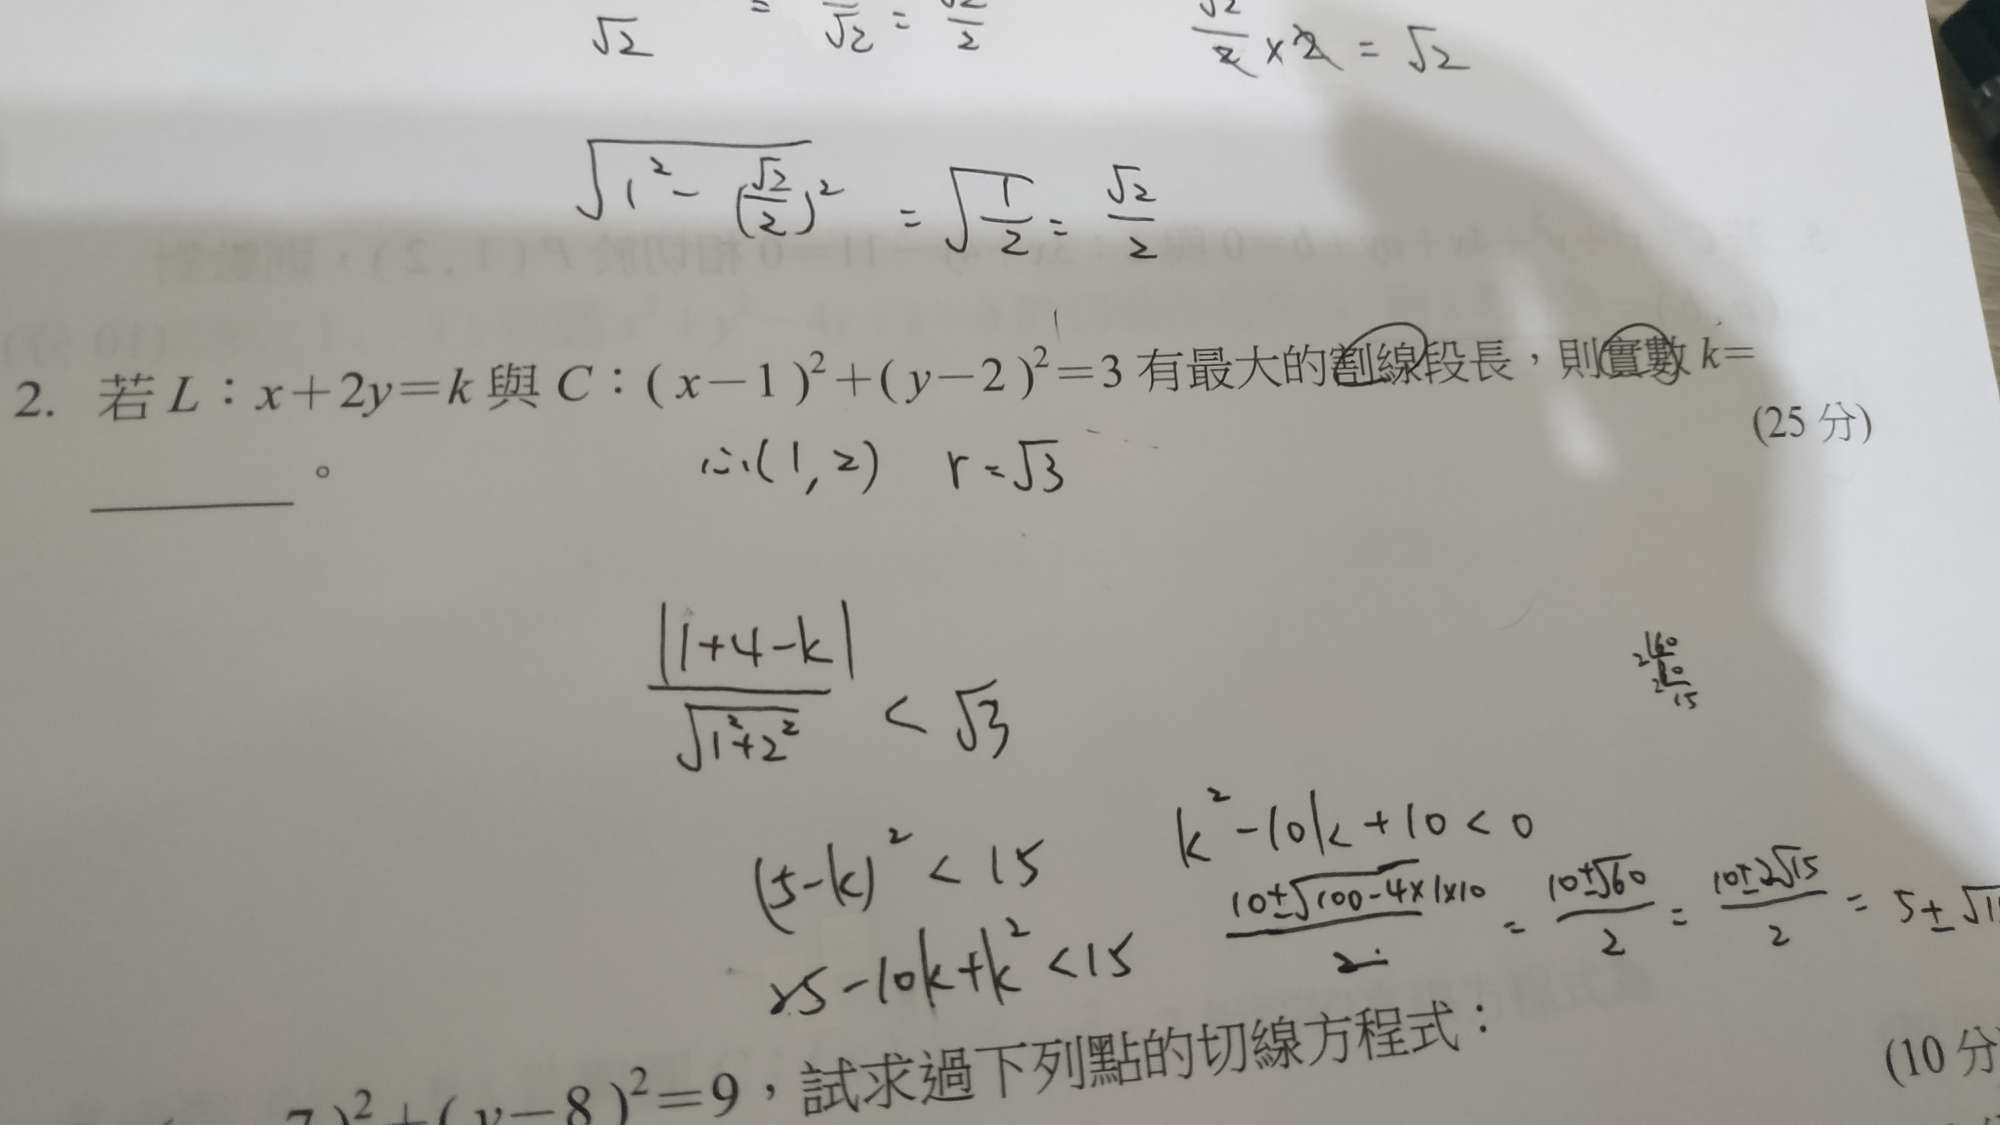 √2 = /√2 = √2/2
√2/2 × 2 = √2
√(1² - (√2/2)²) = √(1/2) = √2/2
2. 若 L：x＋2y＝k 與 C：( x－1 )²＋( y－2 )²＝3 有最大的割線段長，則實數 k＝
(25 分)
______。
心(1,2) r=√3
|1+4-k| / √(1²+2²) < √3
2 60
2
15
(5-k)² < 15
k² -10k +10 < 0
(10±√(100-4×1×10))/2 = (10±√60)/2 = (10±2√15)/2 = 5±√1
25 -10k+k² <15
7 )²＋( y－8 )²＝9，試求過下列點的切線方程式：
(10 分